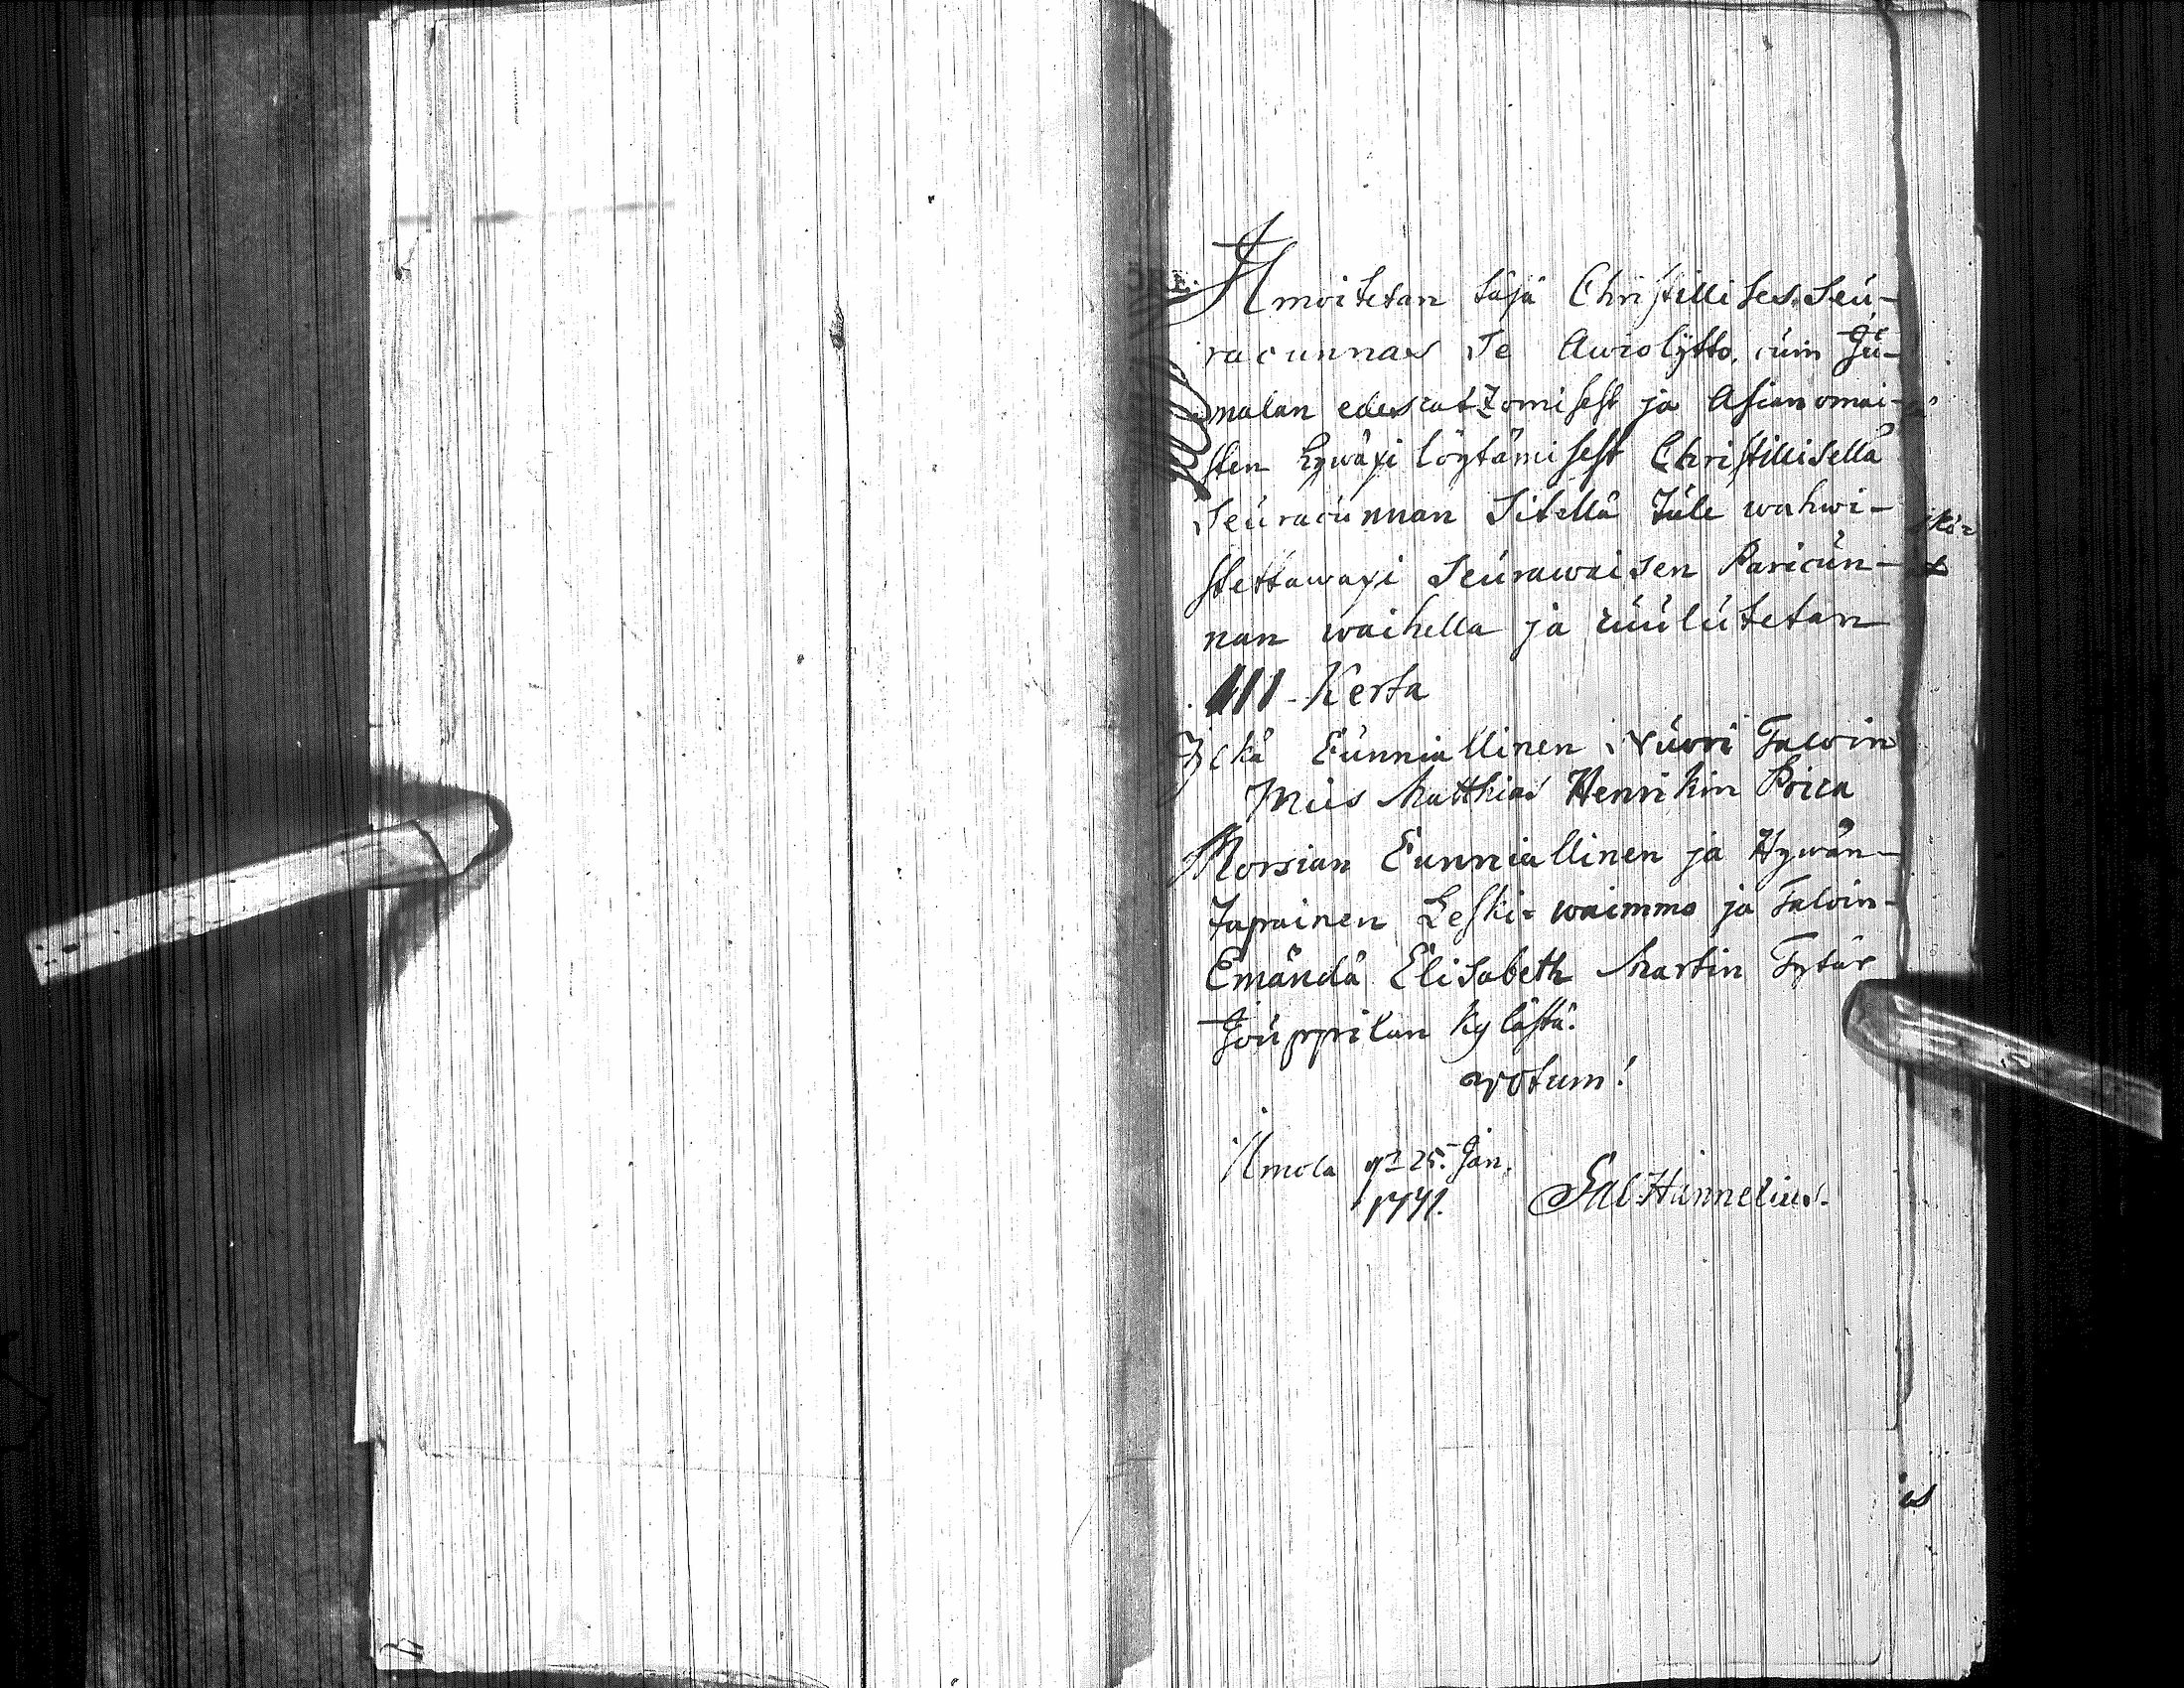 Ilmoitetan täsä Christillises Seu-
racunnas Se Awiolijtto, cuin Ju-
malan edescatzomisest ja Asianomai-
sten hywäxi löytämisest Christillisellä
Seuracunnan Sitellä tule wahwi-
stettawaxi Seurawaisen Paricun-
nan waihella ja cuulutetan
III Kerta
Ylkä Cunniallinen Nuori Taloin
Mies Matthias Henrikin Poica
Morsian Cunniallinen ja Hywän-
tapainen Leski-waimmo ja Taloin-
Emändä Elisabeth Martin Tytär
Jouppilan Kylästä.
votum!
Ilmola 25. Jan.
Hannelius.